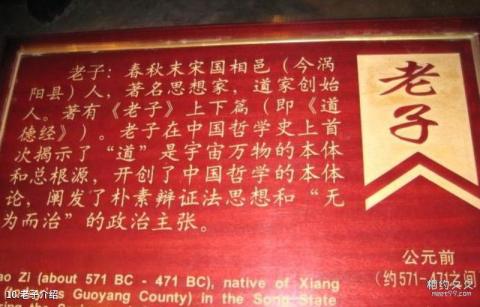 老子：春秋末宋国相邑（今涡
阳县）人，著名思想家，道家创始
人。著有《老子》上下篇（即《道
德经》）。老子在中国哲学史上首
次揭示了“道”是宇宙万物的本体
和总根源，开创了中国哲学的本体
论，阐发了朴素辩证法思想和“无
为而治”的政治主张。
老子
公元前
（约571-471之间
ao Zi (about 571 BC - 471 BC), native of Xiang
Guoyang County) in the Song State
10.老子介绍